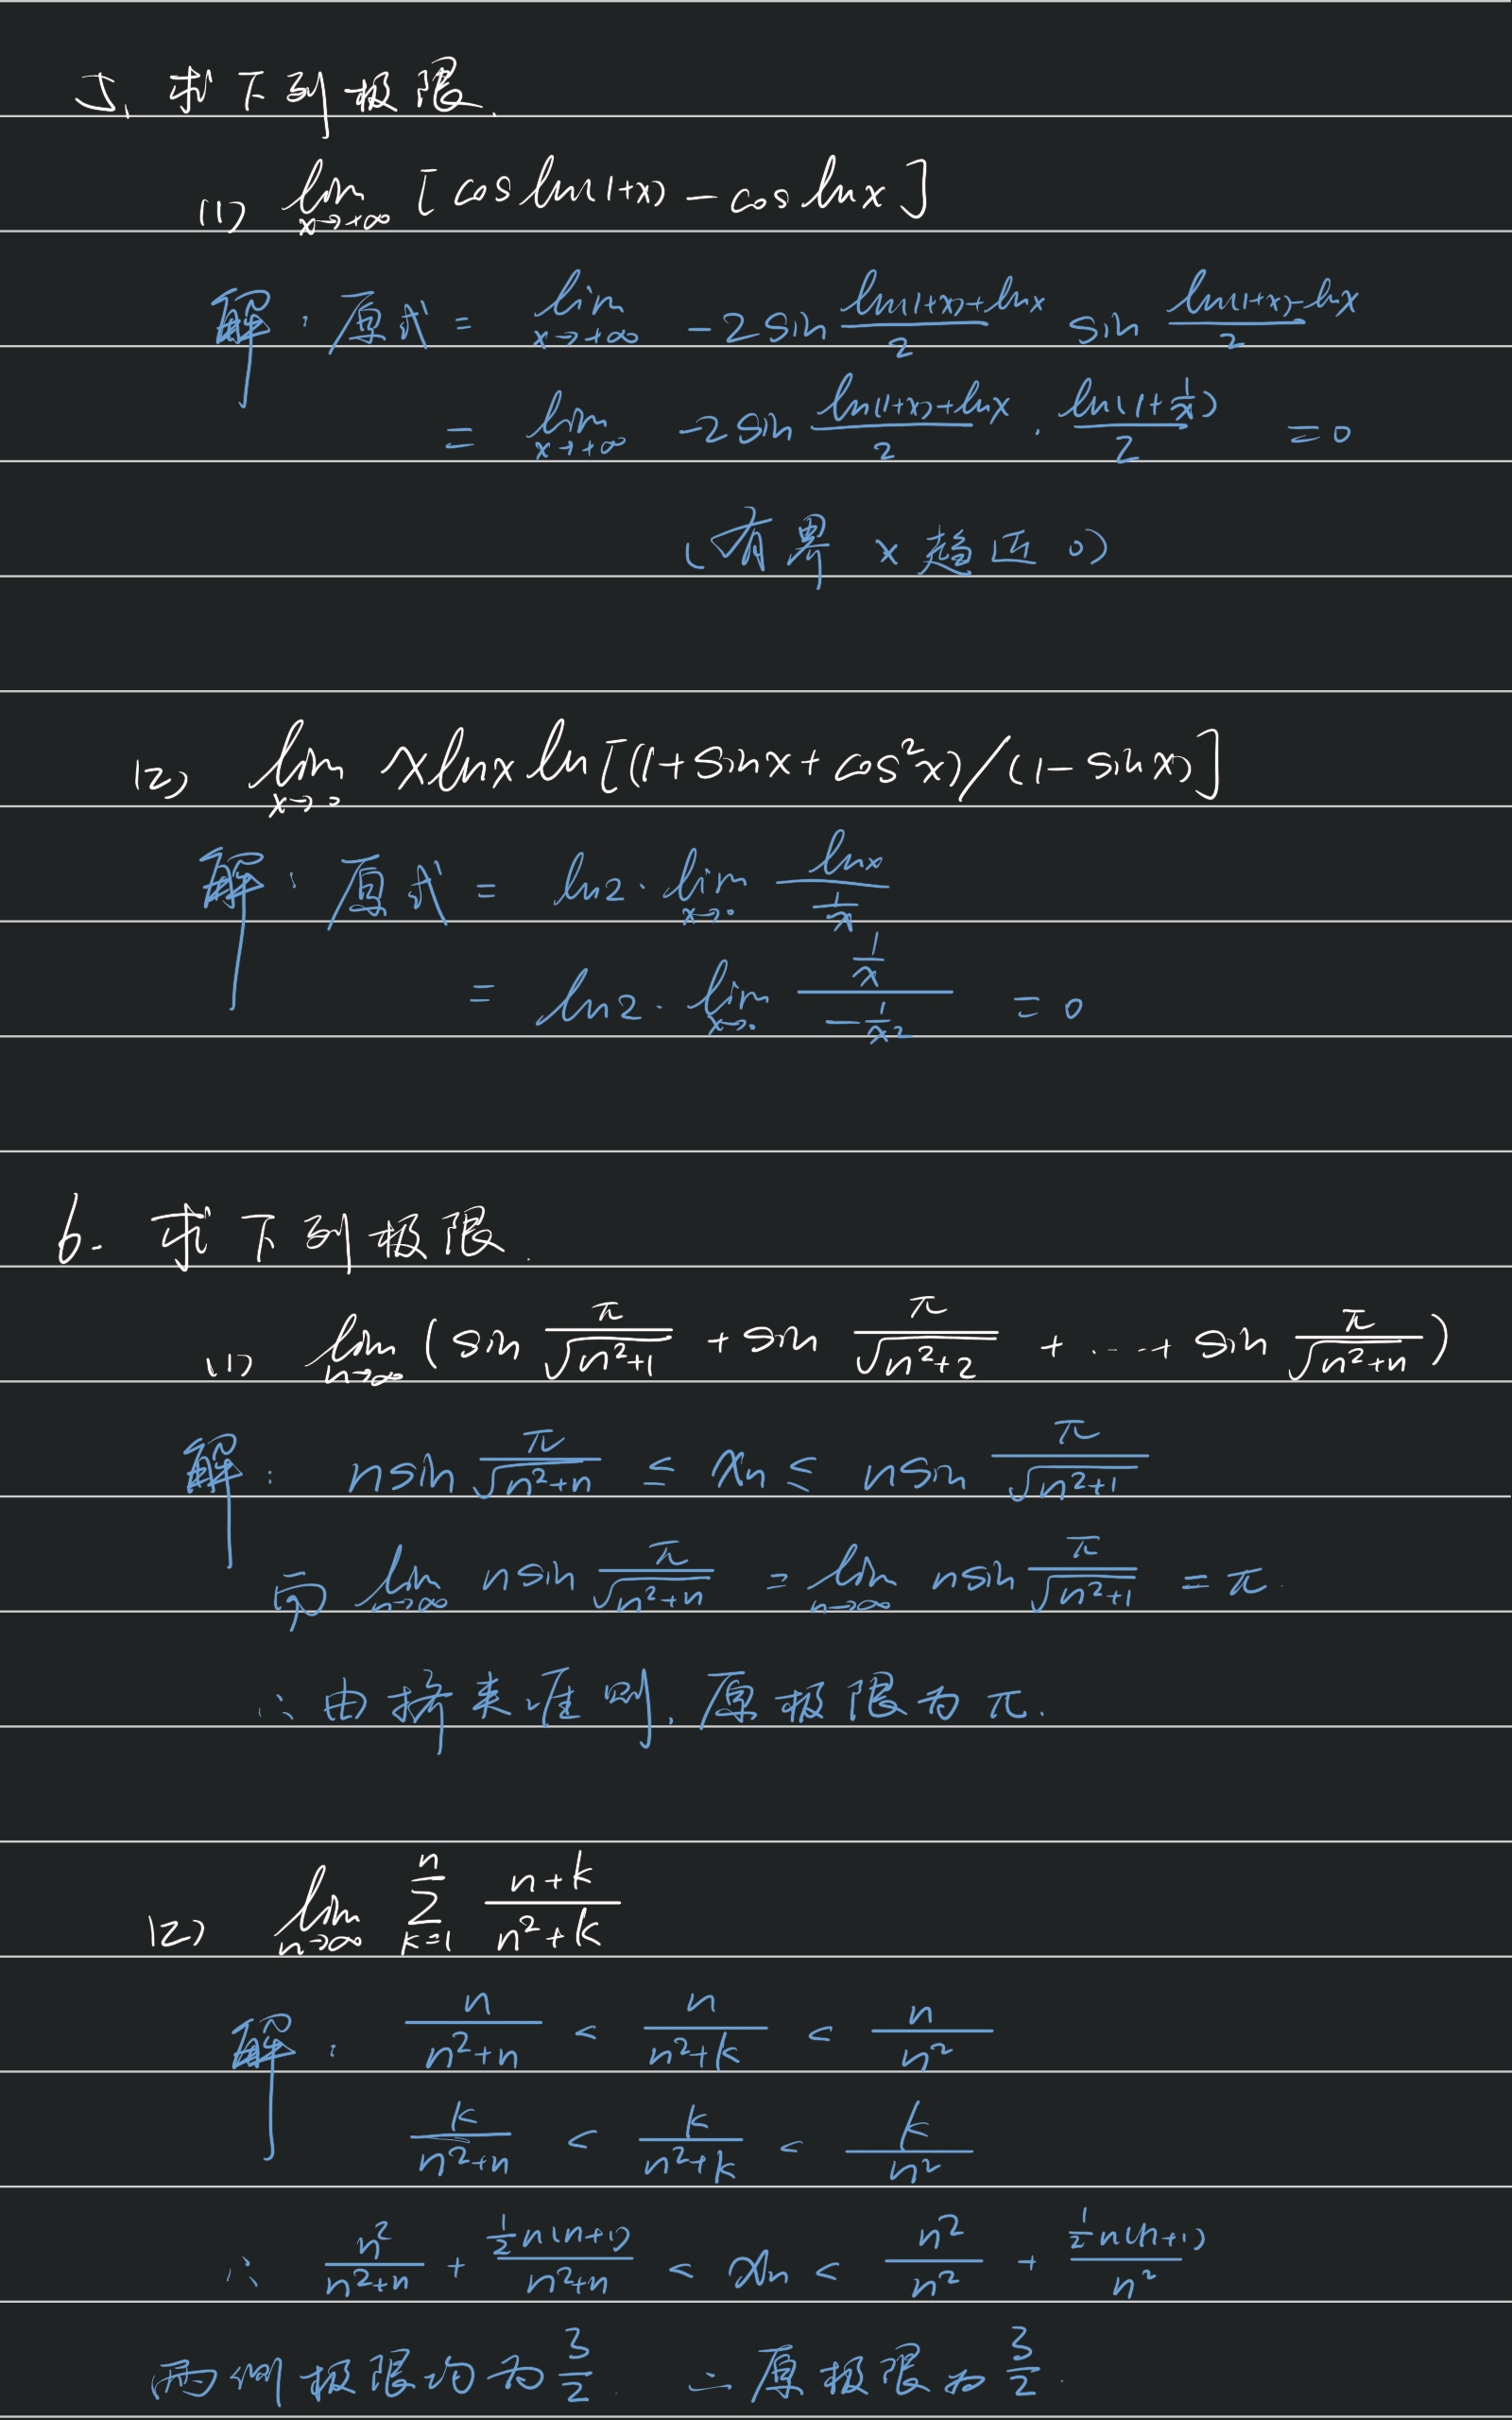 5、求下列极限.
(1) lim_{x→+∞} [cos ln(1+x) - cos lnx]
解：原式 = lim_{x→+∞} -2 sin (ln(1+x)+lnx)/2 sin (ln(1+x)-lnx)/2
= lim_{x→+∞} -2 sin (ln(1+x)+lnx)/2 · ln(1+1/x)/2 = 0
(有界 × 趋近 0)
(2) lim_{x→0} x lnx ln[(1+sinx+cos²x)/(1-sinx)]
解：原式 = ln2 · lim_{x→0} lnx/(1/x)
= ln2 · lim_{x→0} (1/x)/(-1/x²) = 0
6. 求下列极限.
(1) lim_{n→∞} (sin π/√(n²+1) + sin π/√(n²+2) + ... + sin π/√(n²+n))
解： n sin π/√(n²+n) ≤ xn ≤ n sin π/√(n²+1)
而 lim_{n→∞} n sin π/√(n²+n) = lim_{n→∞} n sin π/√(n²+1) = π.
∴ 由挤夹准则, 原极限为 π.
(2) lim_{n→∞} Σ_{k=1}^{n} (n+k)/(n²+k)
解： n/(n²+n) < n/(n²+k) < n/n²
k/(n²+n) < k/(n²+k) < k/n²
∴ n²/(n²+n) + ½n(n+1)/(n²+n) < xn < n²/n² + ½n(n+1)/n²
两侧极限均为 3/2. ∴ 原极限为 3/2.